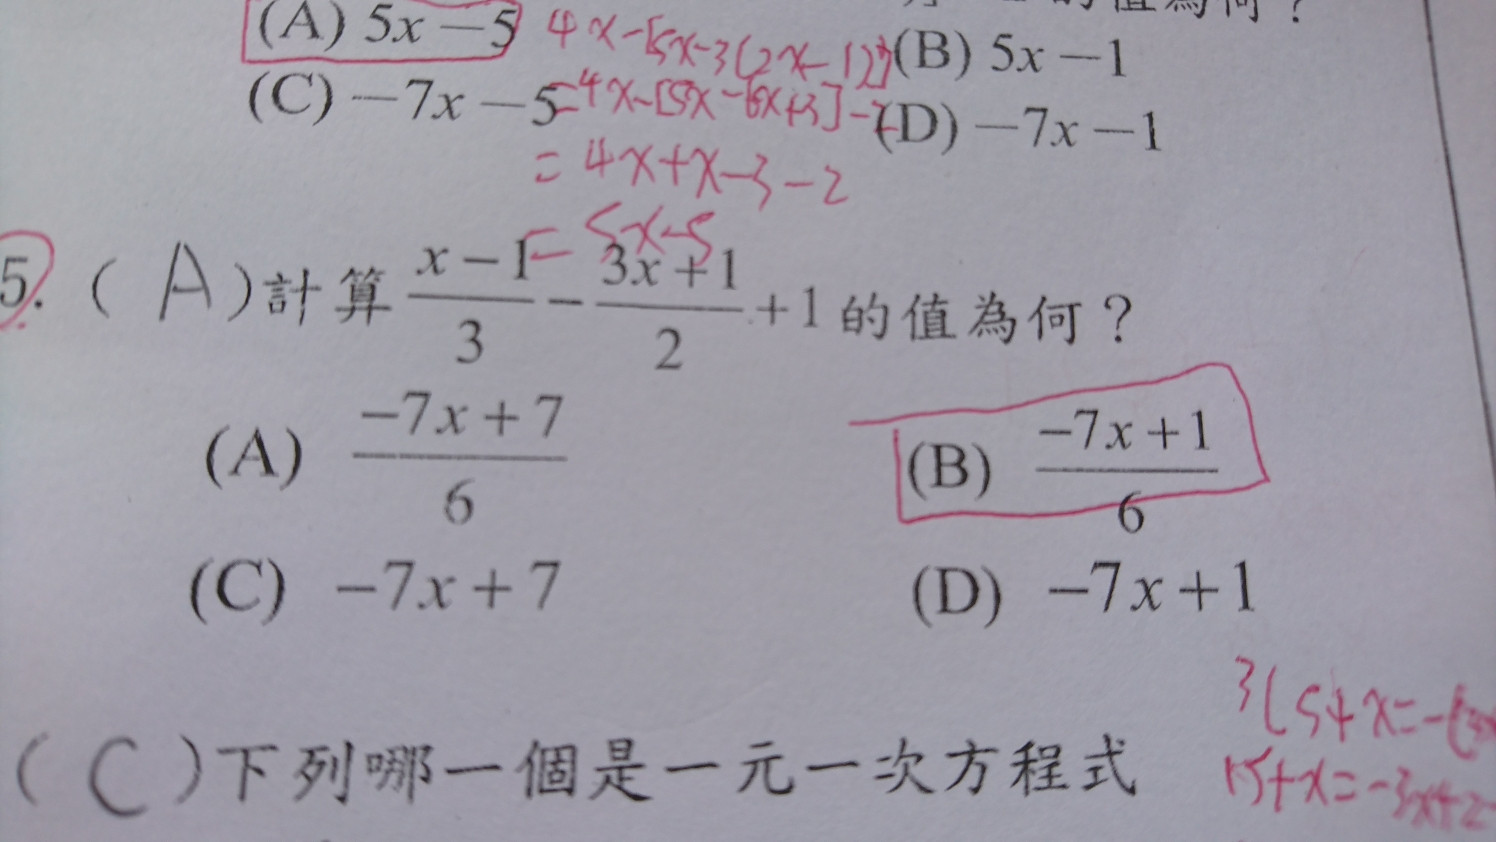 (A) 5x－5 4x-[5x-3(2x-1)] (B) 5x－1
(C) －7x－5 =4x-[5x-6x+3]-2 (D) －7x－1
= 4x+x-3-2
= 5x-5
5. ( A ) 計算 (x－1)/3 － (3x＋1)/2 ＋1 的值為何？
(A) (－7x＋7)/6 (B) (－7x＋1)/6
(C) －7x＋7 (D) －7x＋1
3(5+x=-(3x
( C ) 下列哪一個是一元一次方程式
15+x=-3x+2